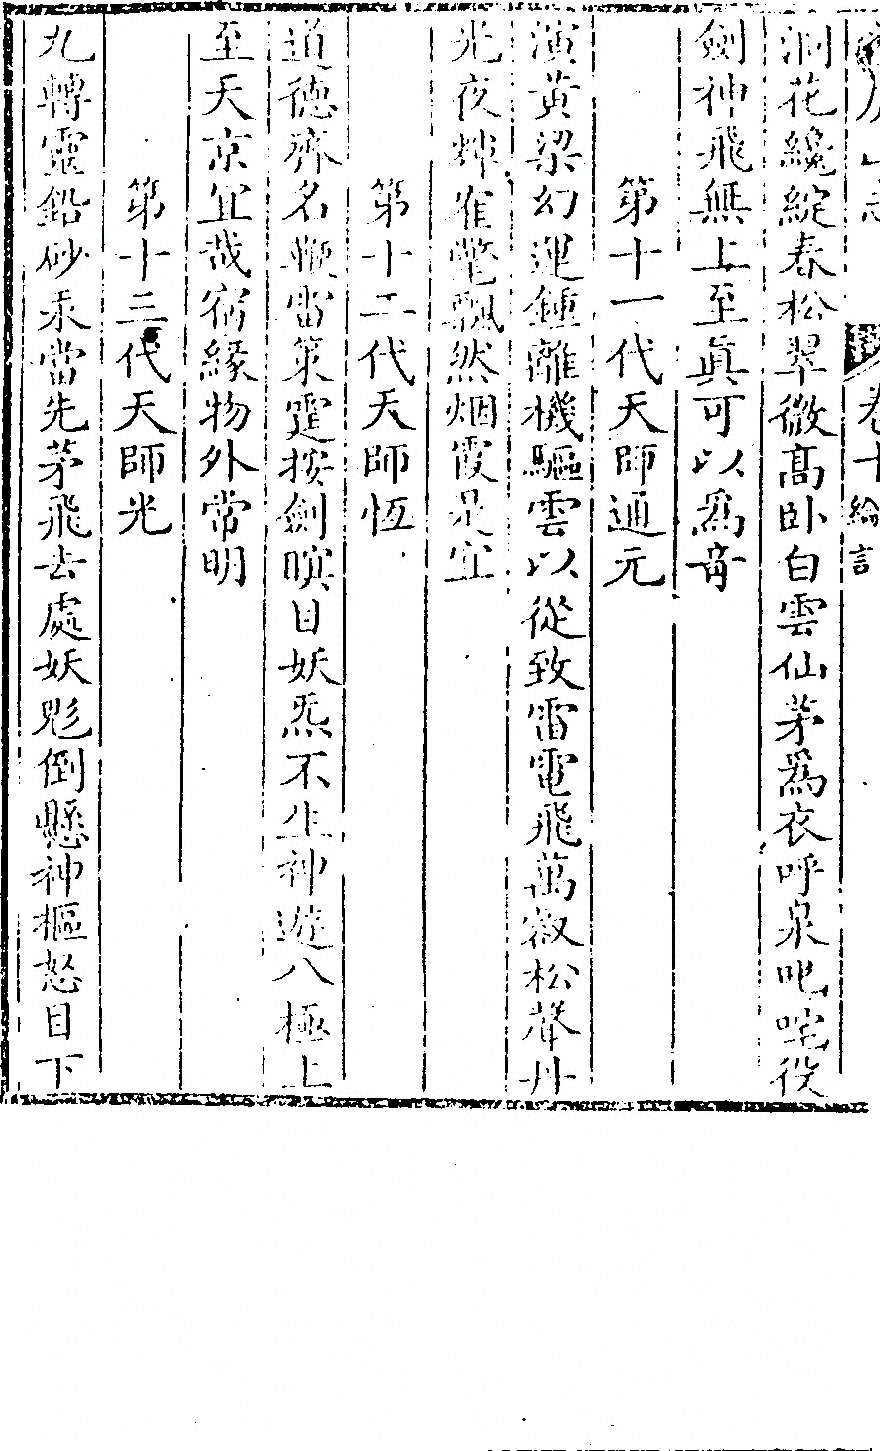 卷十 綸言
洞花纔綻春松翠微高卧白雲仙茅爲衣呼泉叱咤役
劍神飛無上至眞可以爲
第十一代天師通元
演黄梁幻運鍾離機驅雲以從致雷電飛萬壑松聲丹
光夜燁隺氅飄然烟霞是宜
第十二代天師恆
道德齊名鞭雷策霆按劍瞋目妖炁不生神遊八極上
至天京宜哉宿緣物外常明
第十三代天師光
九轉靈鉛砂汞當先茅飛去處妖鬽倒懸神樞怒目下